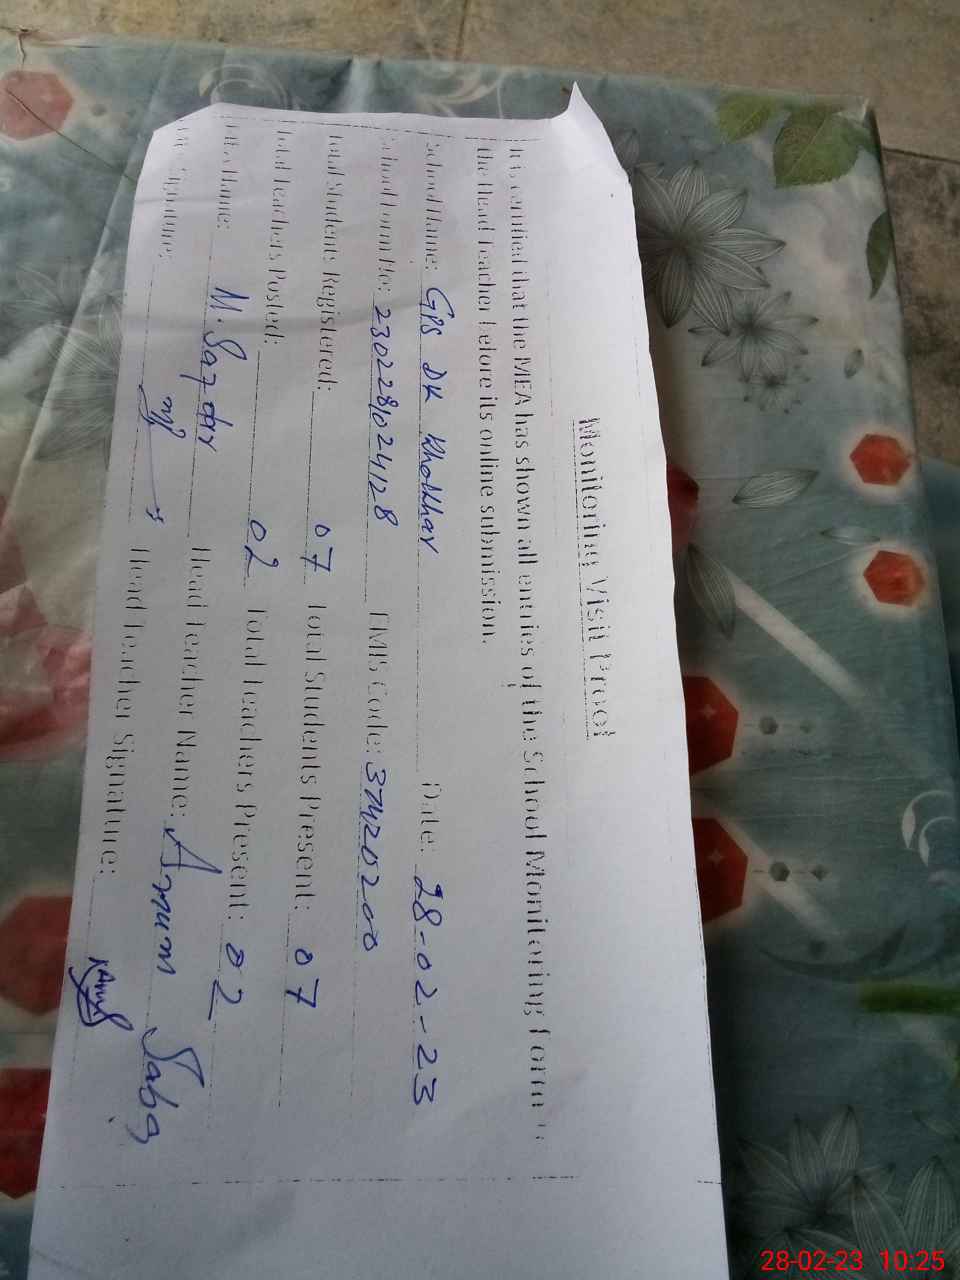 Monitoring Visit Proof
It is certified that the MEA has shown all entries of the School Monitoring Form to
the Head Teacher before its online submission.
School Name: GPS DK Khokhar Date: 28-02-23
School Form No: 2302281024128 EMIS Code: 37420200
Total Students Registered: 07 Total Students Present: 07
Total Teachers Posted: 02 Total Teachers Present: 02
MEA Name: M. Safdar Head Teacher Name: Anum Saba
MEA Signature: Head Teacher Signature:
28-02-23 10:25